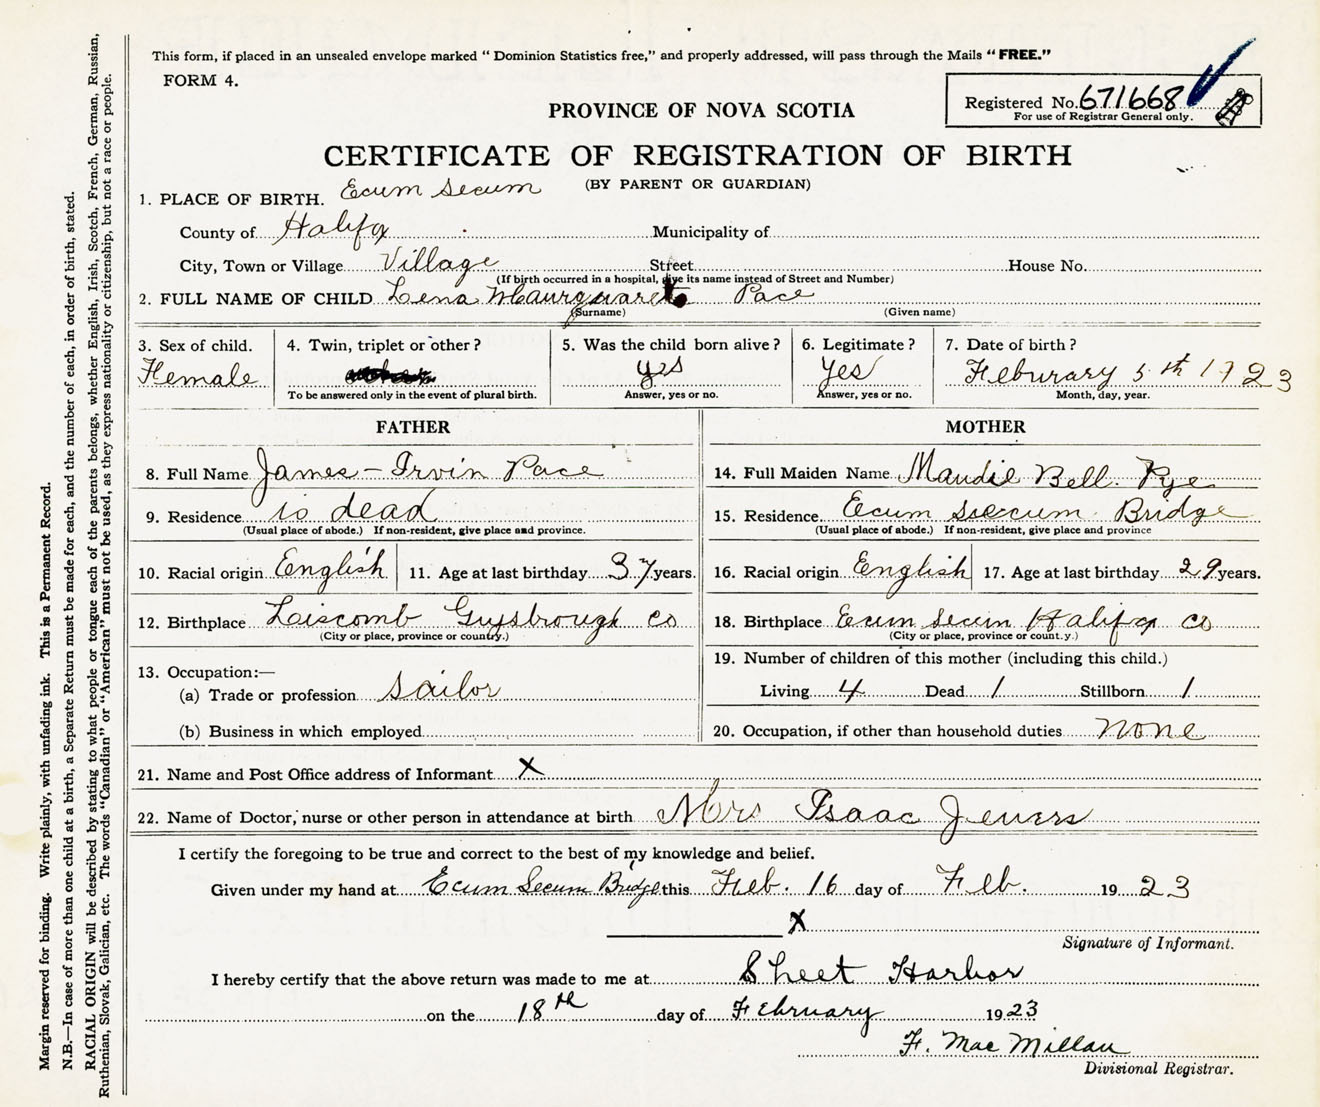 This form, if placed in an unsealed envelope marked " Dominion Statistics free," and properly addressed, will pass through the Mails " FREE."
FORM 4.
Registered No. 671668
For use of Registrar General only.
PROVINCE OF NOVA SCOTIA
CERTIFICATE OF REGISTRATION OF BIRTH
(BY PARENT OR GUARDIAN)
1. PLACE OF BIRTH. Ecum Secum
County of Halifax Municipality of
City, Town or Village Village Street House No.
(If birth occurred in a hospital, give its name instead of Street and Number)
2. FULL NAME OF CHILD Lena Pace
(Surname) (Given name)
3. Sex of child. 4. Twin, triplet or other? 5. Was the child born alive? 6. Legitimate? 7. Date of birth?
Female yes Yes Feburary 5th 1923
To be answered only in the event of plural birth. Answer, yes or no. Answer, yes or no. Month, day, year.
FATHER MOTHER
8. Full Name James - Irvin Pace 14. Full Maiden Name Maudie Bell. Pye
9. Residence is dead 15. Residence Ecum Ssecum Bridge
(Usual place of abode.) If non-resident, give place and province. (Usual place of abode.) If non-resident, give place and province
10. Racial origin English 11. Age at last birthday 37 years. 16. Racial origin English 17. Age at last birthday 29 years.
12. Birthplace Liscomb Guysbrough Co 18. Birthplace Ecum Secum Halifax Co
(City or place, province or country.) (City or place, province or count.y.)
13. Occupation:— 19. Number of children of this mother (including this child.)
(a) Trade or profession Sailor Living 4 Dead 1 Stillborn 1
(b) Business in which employed 20. Occupation, if other than household duties None
21. Name and Post Office address of Informant X
22. Name of Doctor, nurse or other person in attendance at birth Mrs Isaac Jewers
I certify the foregoing to be true and correct to the best of my knowledge and belief.
Given under my hand at Ecum Secum Bridge this Feb. 16 day of Feb. 1923
X
Signature of Informant.
I hereby certify that the above return was made to me at Sheet Harbor
on the 18th day of February 1923
F. Mac Millan
Divisional Registrar.
Margin reserved for binding. Write plainly, with unfading ink. This is a Permanent Record.
N.B.—In case of more than one child at a birth, a Separate Return must be made for each, and the number of each, in order of birth, stated.
RACIAL ORIGIN will be described by stating to what people or tongue each of the parents belongs, whether English, Irish, Scotch, French, German, Russian,
Ruthenian, Slovak, Galician, etc. The words "Canadian" or "American" must not be used, as they express nationality or citizenship, but not a race or people.